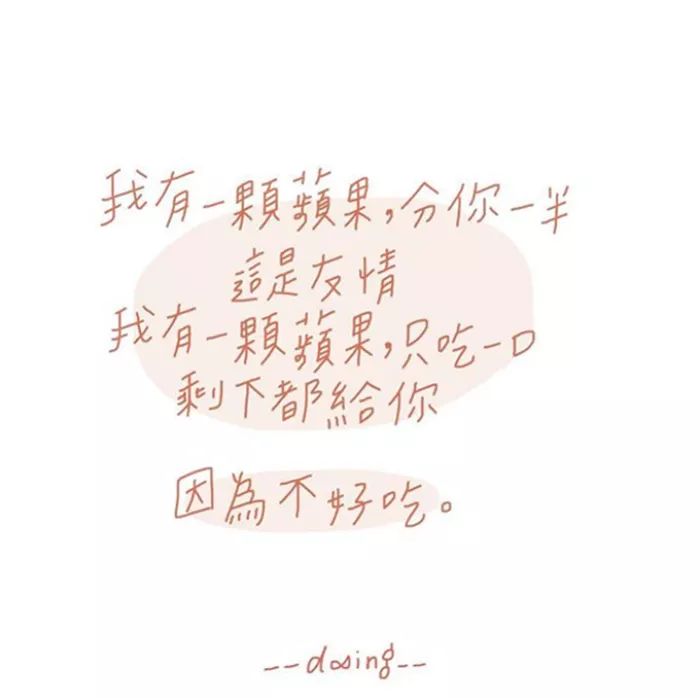 我有一顆蘋果,分你一半
這是友情
我有一顆蘋果,只吃一口
剩下都給你
因為不好吃。
--dosing--